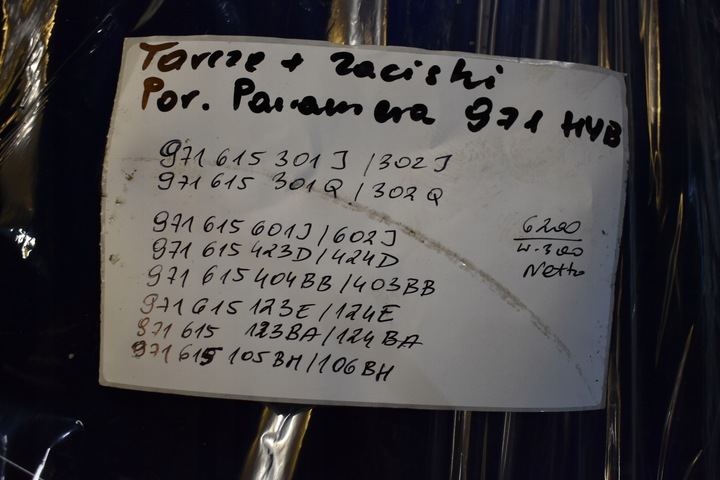 Tarcze + Zaciski
Por. Panamera 971 HYB
971 615 301 J / 302 J
971 615 301 Q / 302 Q
971 615 601 J / 602 J
971 615 423 D / 424 D
971 615 404 BB / 403 BB
971 615 123 E / 124 E
971 615 123 BA / 124 BA
971 615 105 BH / 106 BH
6200
4.300
Netto